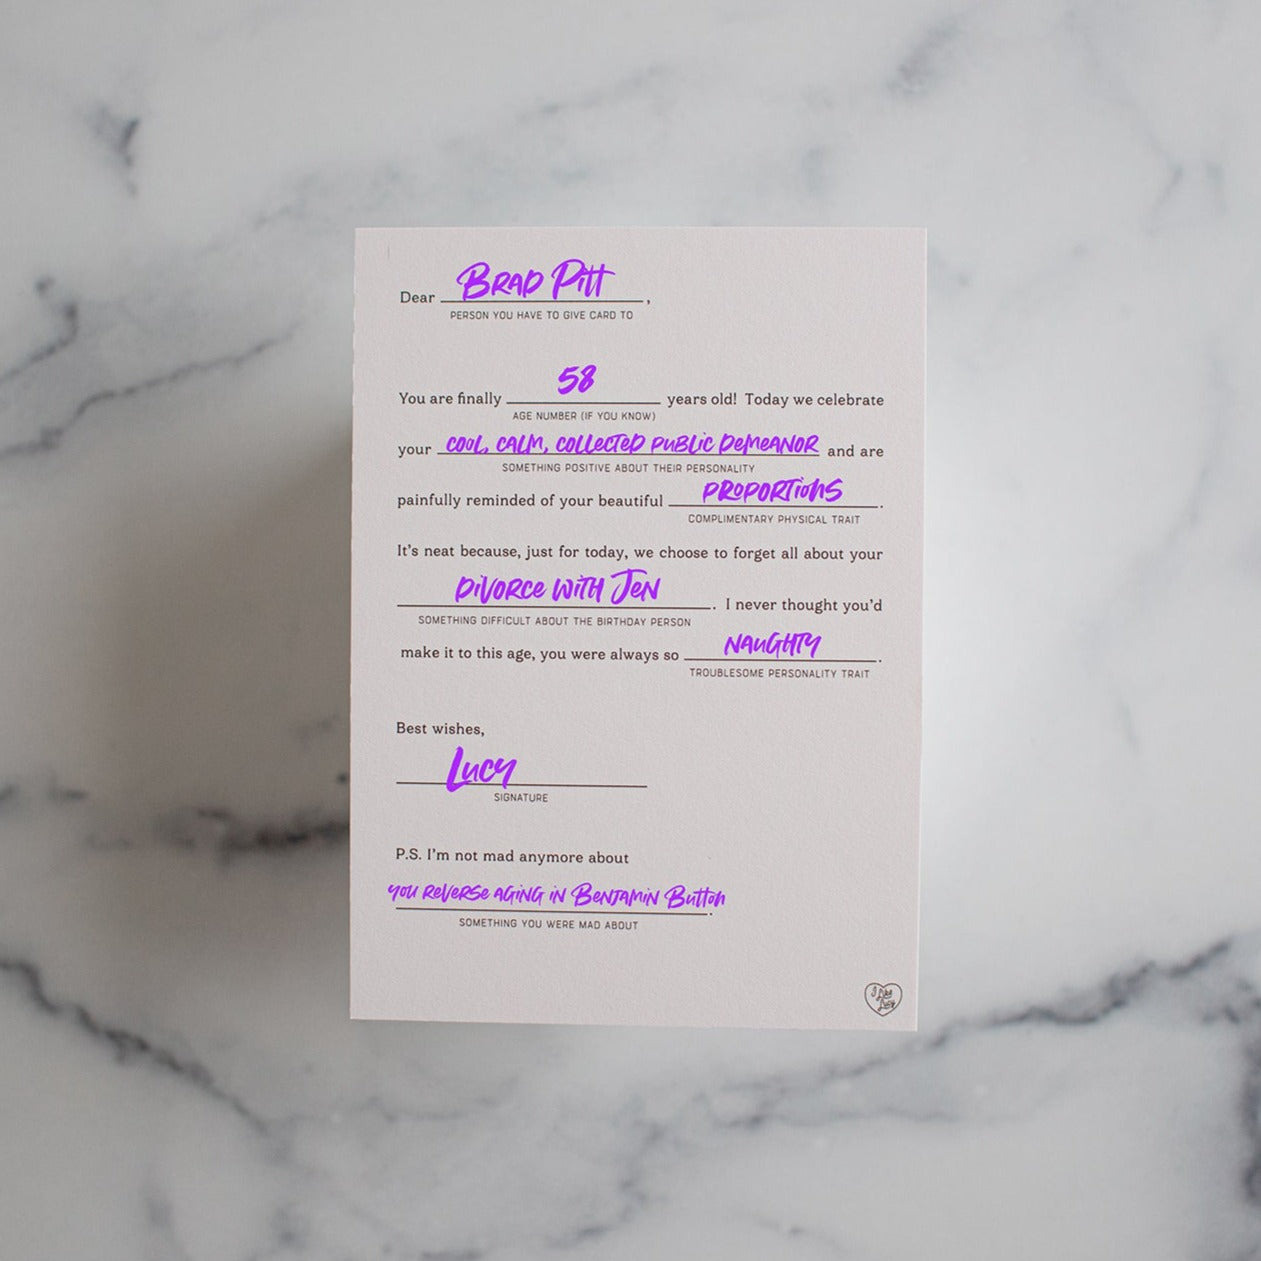 Dear BRAD Pitt,
PERSON YOU HAVE TO GIVE CARD TO
You are finally 58 years old! Today we celebrate
AGE NUMBER (IF YOU KNOW)
your COOL, CALM, COLLECTED PUBLIC DEMEANOR and are
SOMETHING POSITIVE ABOUT THEIR PERSONALITY
painfully reminded of your beautiful PROPORTIONS.
COMPLIMENTARY PHYSICAL TRAIT
It's neat because, just for today, we choose to forget all about your
DIVORCE WITH JEN. I never thought you'd
SOMETHING DIFFICULT ABOUT THE BIRTHDAY PERSON
make it to this age, you were always so NAUGHTY.
TROUBLESOME PERSONALITY TRAIT
Best wishes,
Lucy
SIGNATURE
P.S. I'm not mad anymore about
YOU REVERSE AGING IN BENJAMIN BUTTON.
SOMETHING YOU WERE MAD ABOUT
I Like Lucy